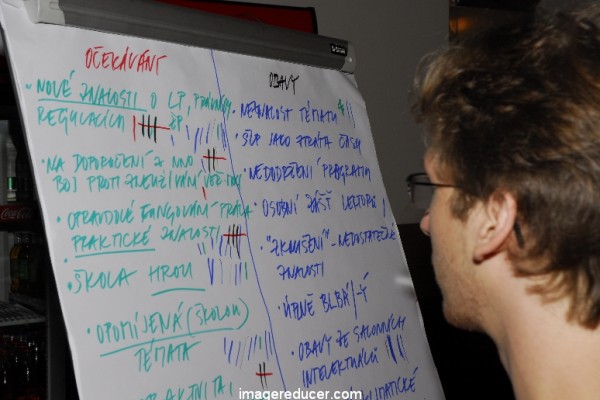 OČEKÁVÁNÍ
NOVÉ ZNALOSTI O LP, PRÁVNÍ
REGULACÍCH ŽP
• NA DOPORUČENÍ Z NNO
BOJ PROTI ZNEUŽÍVÁNÍ
• OPRAVDOVÉ FUNGOVÁNÍ PRÁVA
PRAKTICKÉ ZNALOSTI
• ŠKOLA HROU
• OPOMÍJENÁ (ŠKOLOU)
TÉMATA
OBAVY
• NEZNALOST TÉMATU
• JAKO ZTRÁTA ČASU
• NEDODRŽENÍ PROGRAMU
• OSOBNÍ ZÁŠŤ LEKTORŮ
• "ZKOUŠENÍ" - NEDOSTATEČNÉ
ZNALOSTI
• ÚPLNĚ BLBÁ/-Ý
• OBAVY ZE SALONNÍCH
INTELEKTUÁLŮ
imagereducer.com